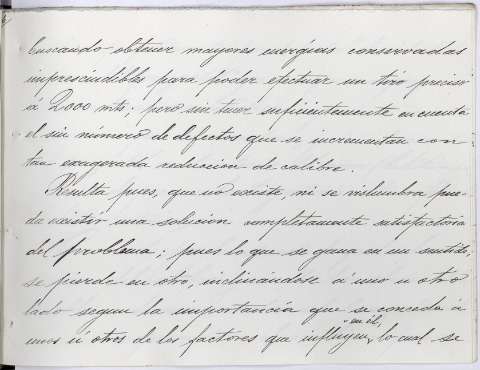 buscando obtener mayores energías conservadas
imprescindibles para poder efectuar un tiro preciso
á 2000 mts; pero sin tener suficientemente en cuenta
el sin número de defectos que se incrementan con
tan exagerada reduccion de calibre.
Resulta pues, que no existe, ni se vislumbra pue-
da existir una solucion completamente satisfactoria
del problema; pues lo que se gana en un sentido,
se pierde en otro, inclinándose á uno u otro
lado segun la importancía que se conceda á
unos ú otros de los factores que influyen en él, lo cual se